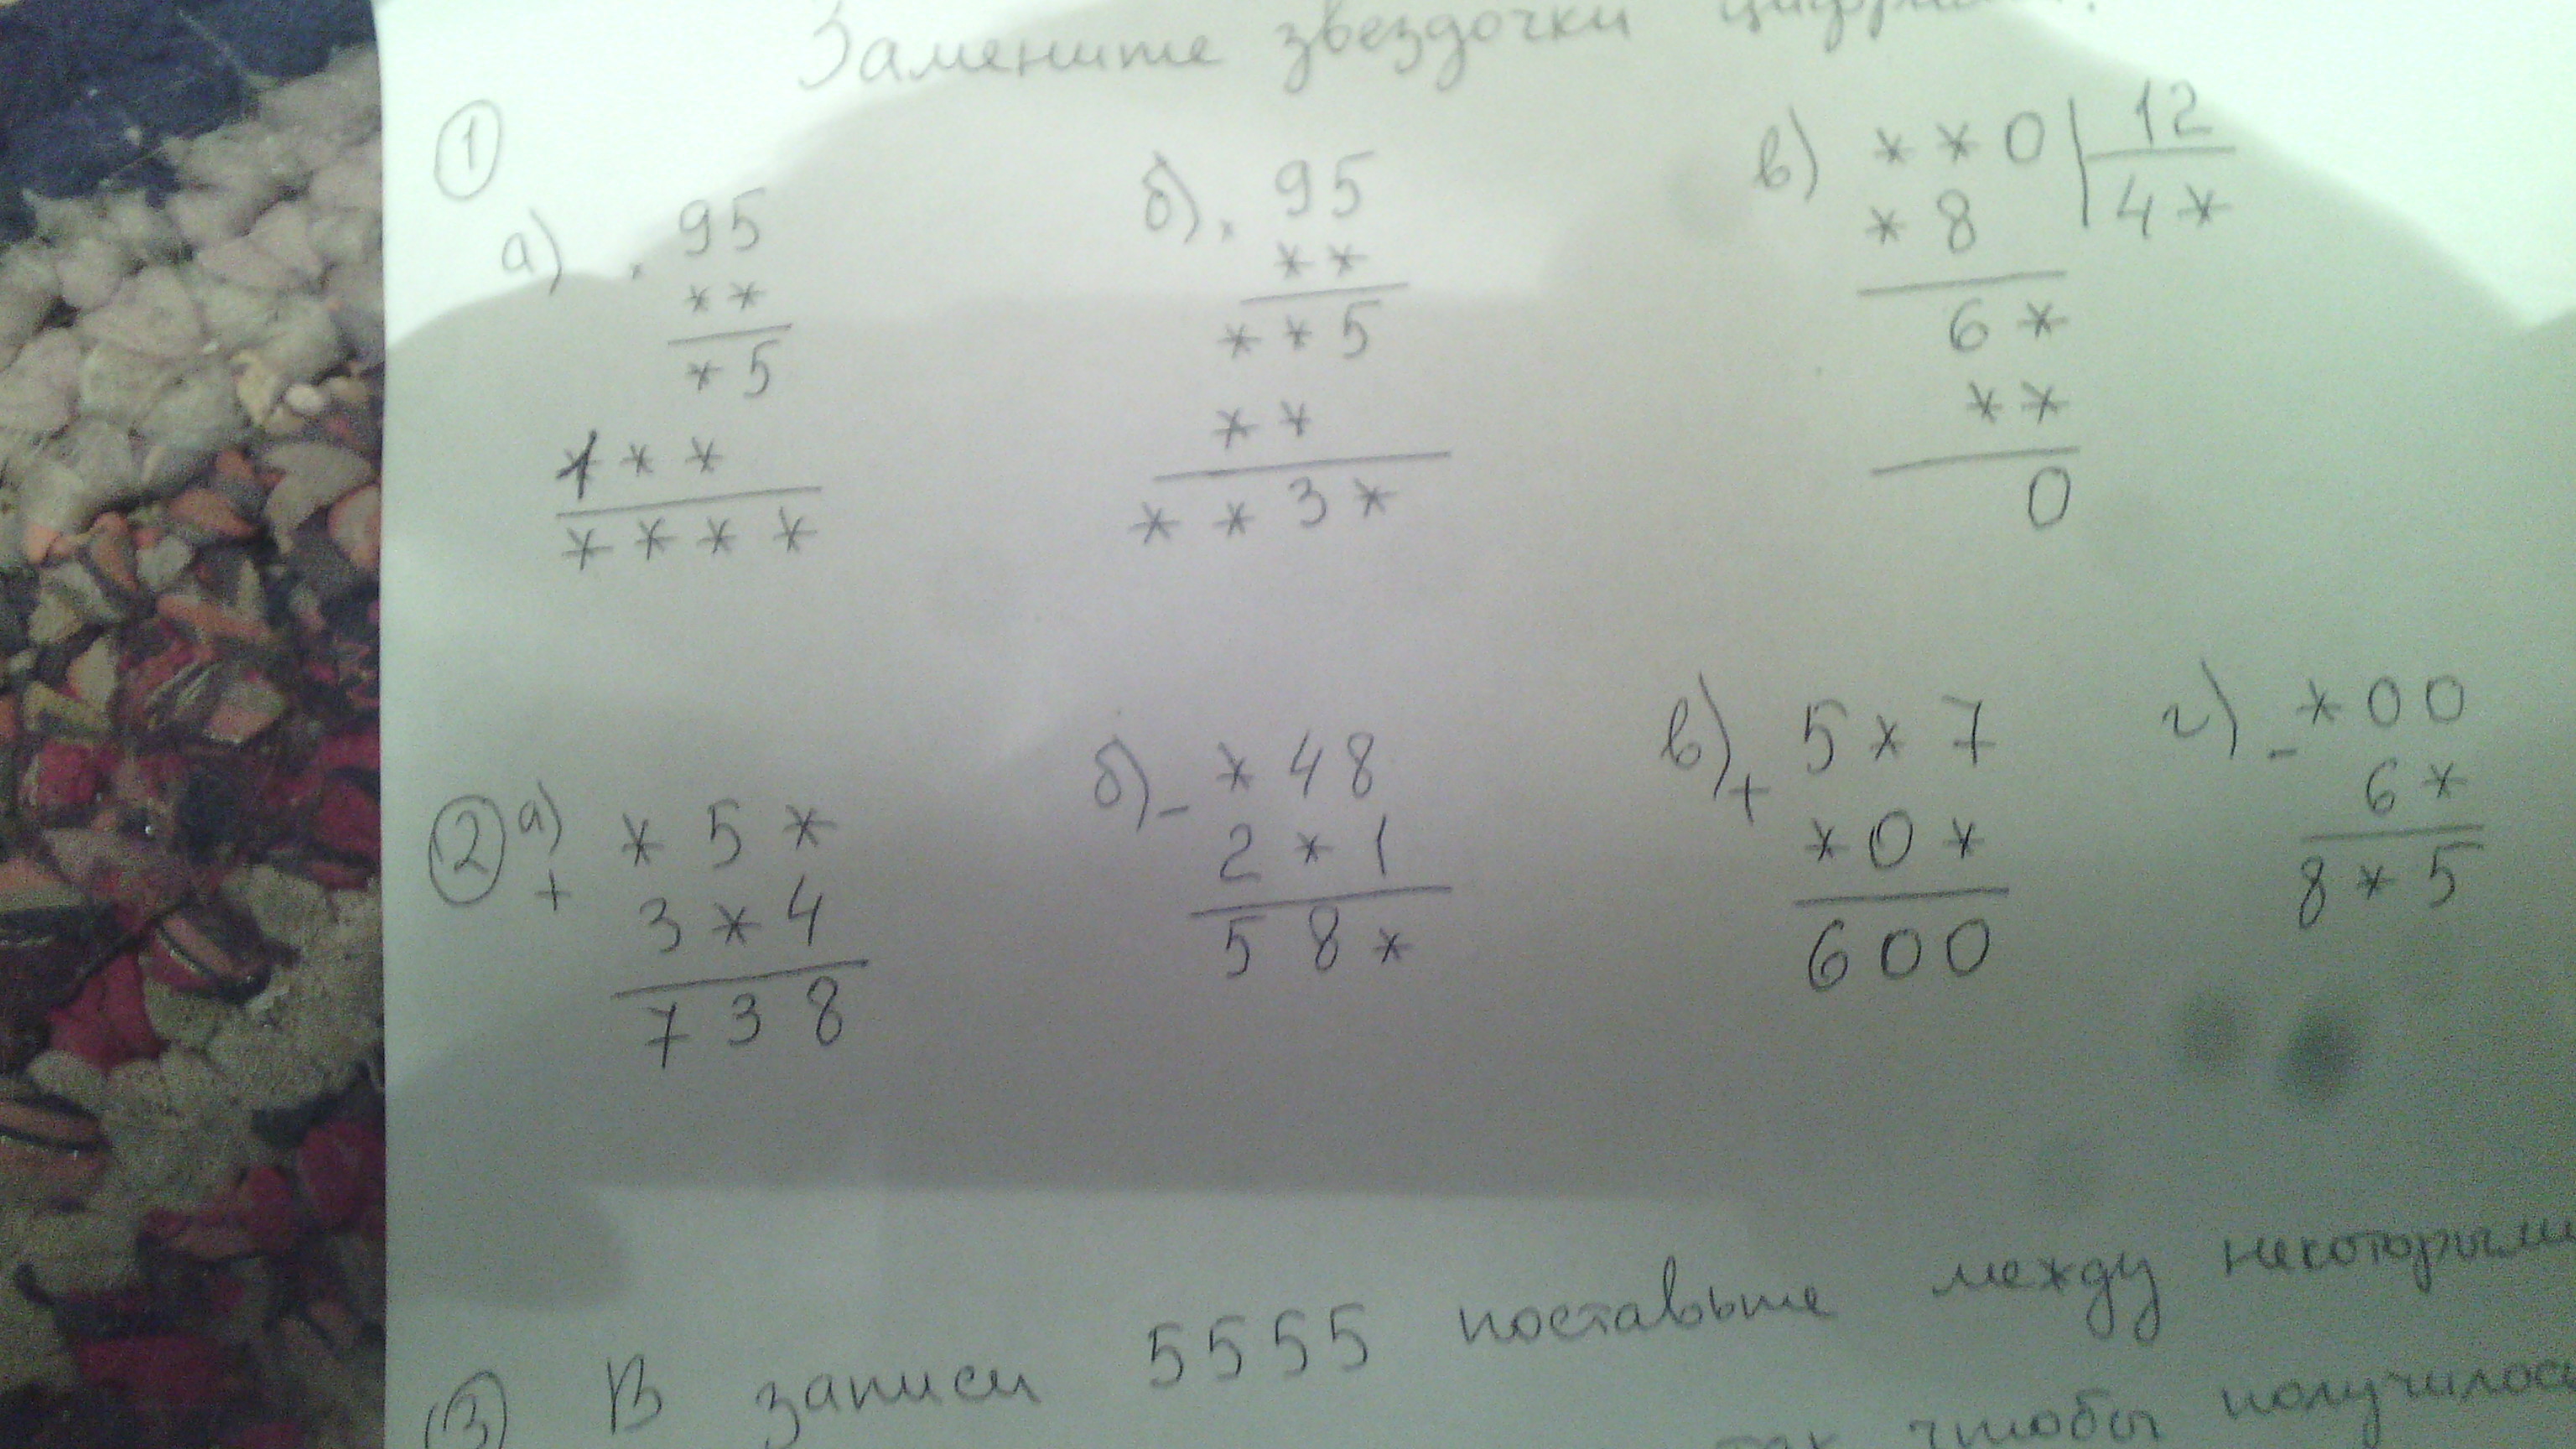 Замените звездочки цифрами.
1
а) × 95
**
*5
1**
****
б) × 95
**
**5
**
**3*
в) **0 | 12
*8 | 4*
6*
**
0
2
а) + *5*
3*4
738
б) - *48
2*1
58*
в) + 5*7
*0*
600
г) - *00
6*
8*5
3 В записи 5555 поставьте между некоторыми
так чтобы получилось